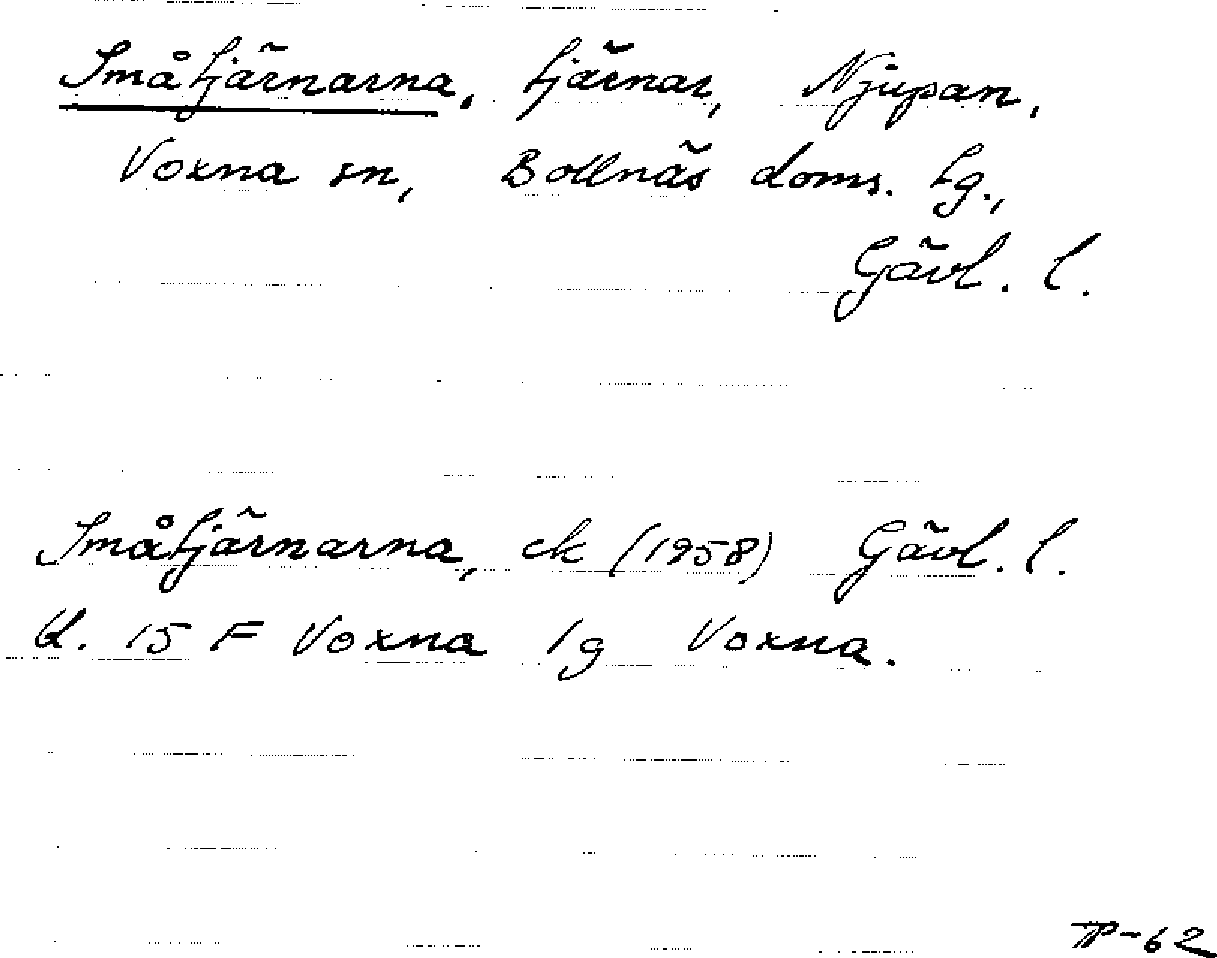 Småtjärnarna, tjärnar, Njupan,
Voxna sn, Bollnäs doms. tg.,
Gävl. l.
Småtjärnarna, ek (1958) Gävl. l.
bl. 15 F Voxna 1g Voxna.
-62